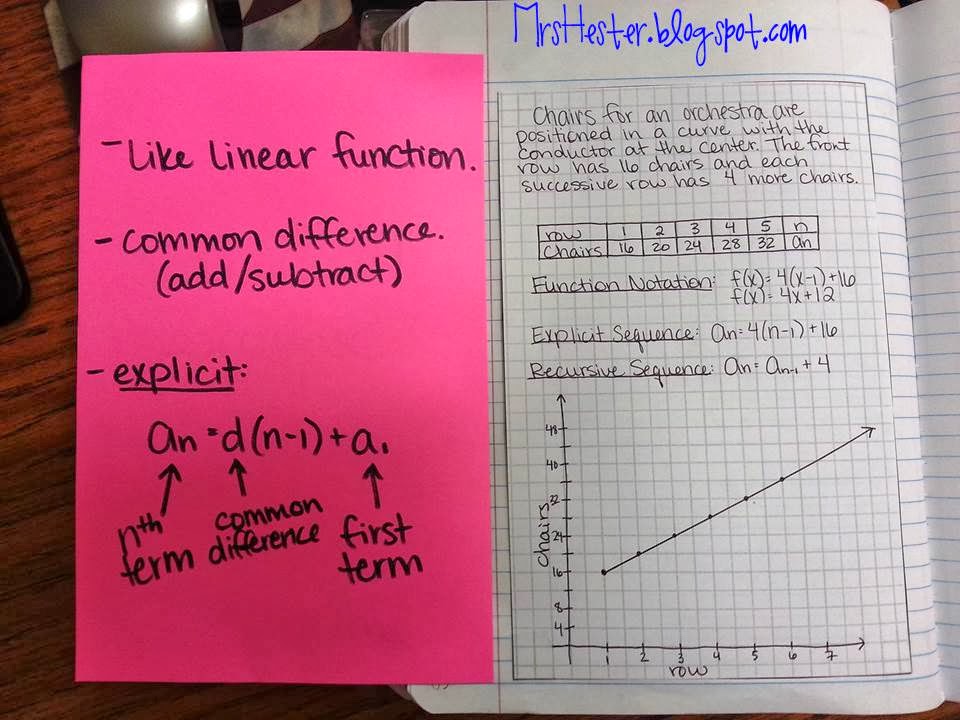 MrsHester.blogspot.com
- Like linear function.
- common difference.
(add/subtract)
- explicit:
an = d(n-1) + a1
nth term
common difference
first term
Chairs for an orchestra are
positioned in a curve with the
conductor at the center. The front
row has 16 chairs and each
successive row has 4 more chairs.
row 1 2 3 4 5 n
Chairs 16 20 24 28 32 an
Function Notation: f(x) = 4(x-1)+16
f(x) = 4x+12
Explicit Sequence: an = 4(n-1)+16
Recursive Sequence: an = an-1 + 4
48
40
22
24
16
8
4
chairs
1 2 3 4 5 6 7
row